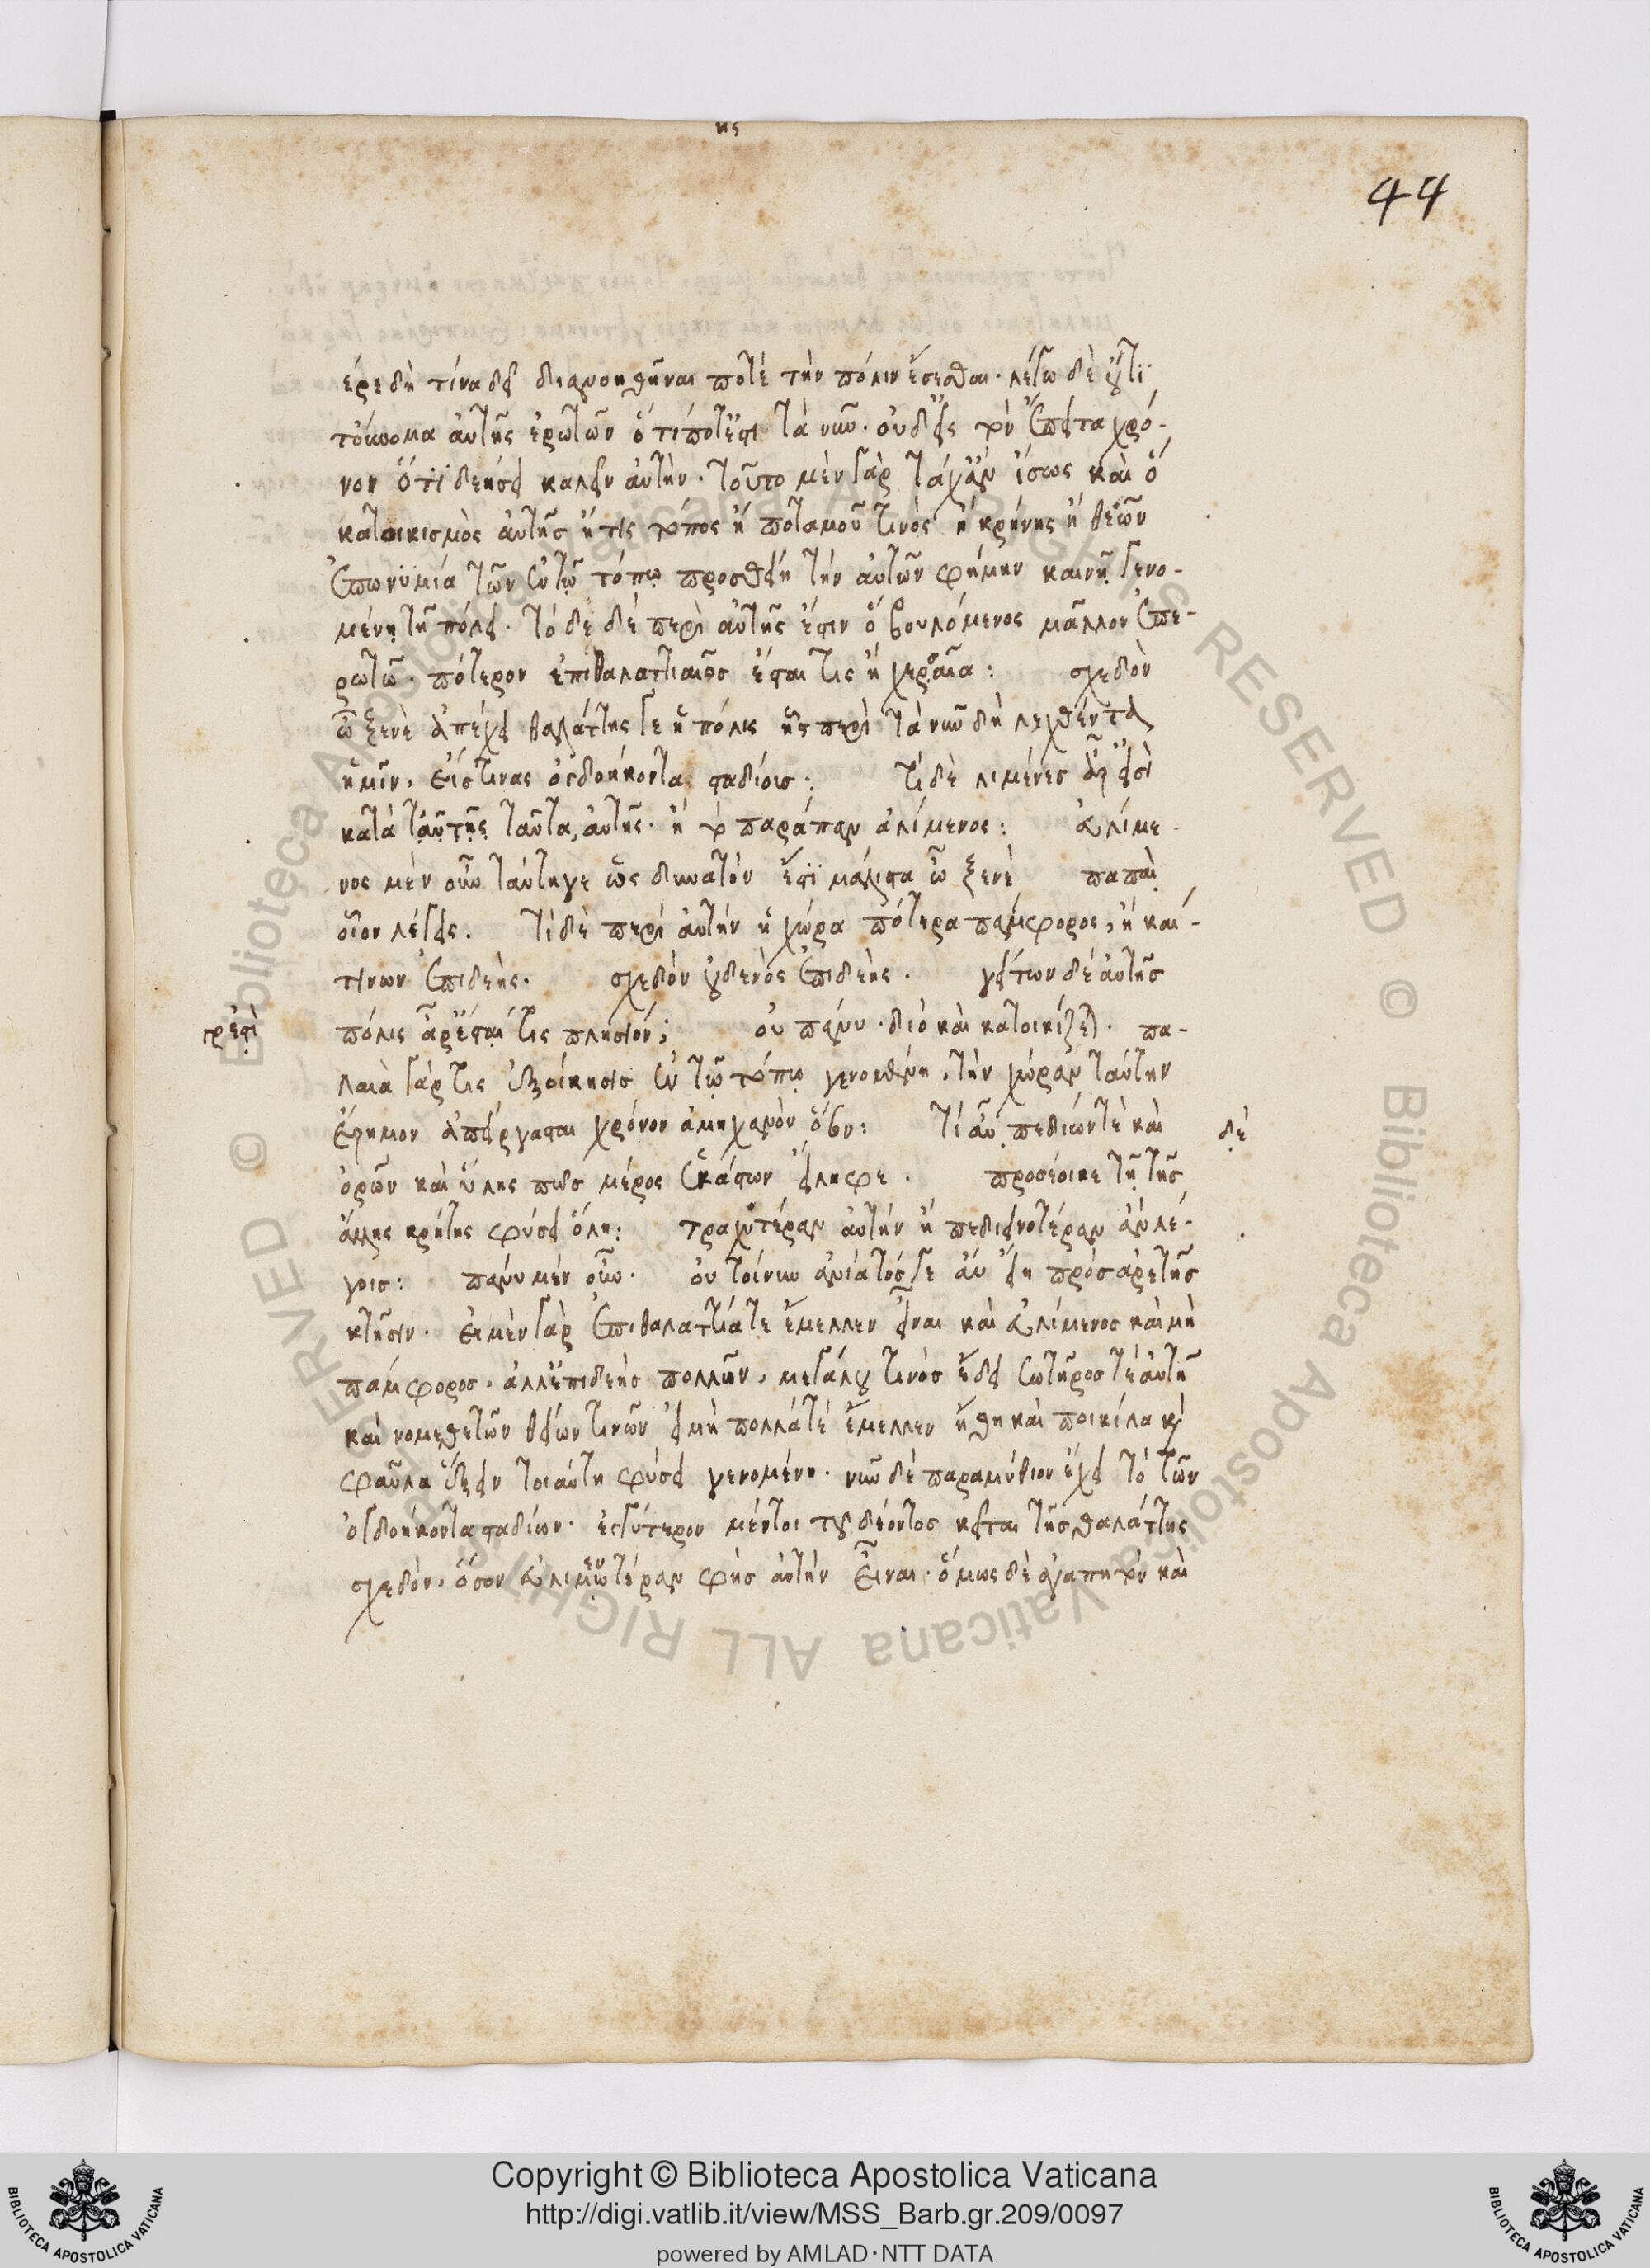 κς
44
έρε δὴ τίνα δεῖ διανοηθῆναι ποτὲ τὴν πόλιν ἔσεσθαι· λέγω δὲ οὔτι
τοὔνομα αὐτῆς ἐρωτῶν ὅ τί ποτ' ἔστι τὰ νῦν· οὐδ' εἰς τὸν ἔπειτα χρό-
νον ὅ τι δεήσει καλεῖν αὐτήν· τοῦτο μὲν γὰρ τάχ' ἂν ἴσως καὶ ὁ
κατοικισμὸς αὐτῆς ἤ τις τόπος ἢ ποταμοῦ τινὸς ἢ κρήνης ἢ θεῶν
ἐπωνυμία τῶν ἐν τῷ τόπῳ προσθείη τὴν αὐτῶν φήμην καινῇ γενο-
μένῃ τῇ πόλει· τόδε δὲ περὶ αὐτῆς ἔστιν ὃ βουλόμενος μᾶλλον ἐπε-
ρωτῶ· πότερον ἐπιθαλαττίαιος ἔσται τις ἢ χερσαία: σχεδὸν
ὦ ξένε ἀπέχει θαλάττης γε ἡ πόλις ἧς περὶ τὰ νῦν δὴ λεχθέντα
ἡμῖν, εἴς τινας ὀγδοήκοντα σταδίοις: τί δὲ λιμένες ἆρ' εἰσὶ
κατὰ ταύτης ταῦτα, αὐτῆς· ἢ τὸ παράπαν ἀλίμενος: ἀλίμε-
νος μὲν οὖν ταύτη γε ὡς δυνατὸν ἔστι μάλιστα ὦ ξένε παπαῖ
οἷον λέγεις. τί δὲ περὶ αὐτὴν ἡ χώρα πότερα πάμφορος, ἢ καί
τινων ἐπιδεής. σχεδὸν οὐδενὸς ἐπιδεής. γείτων δὲ αὐτῆς
πόλις ἆρ' ἔσται τις πλησίον; οὐ πάνυ· διὸ καὶ κατοικίζεται. πα-
τρ ἐστὶ
λαιὰ γάρ τις ἐξοίκησις ἐν τῷ τόπῳ γενομένη, τὴν χώραν ταύτην
ἔρημον ἀπείργασται χρόνον ἀμήχανον ὅσον: τί αὖ πεδίων τὲ καὶ
δὲ
ὀρῶν καὶ ὕλης πῶς μέρος ἑκάστων εἴληφε. προσέοικε τῇ τῆς
ἄλλης κρήτης φύσει ὅλῃ: τραχυτέραν αὐτὴν ἢ πεδιεινοτέραν ἂν λέ-
γοις: πάνυ μὲν οὖν. οὐ τοίνυν ἀνίατός γε ἂν εἴη πρὸς ἀρετῆς
κτῆσιν. εἰ μὲν γὰρ ἐπιθαλαττία τε ἔμελλεν εἶναι καὶ ἀλίμενος καὶ μὴ
πάμφορος, ἀλλ' ἐπιδεὴς πολλῶν, μεγάλου τινὸς ἔδει σωτῆρος τὲ αὐτῇ
καὶ νομοθετῶν θείων τινῶν εἰ μὴ πολλά τὲ ἔμελλεν ἤθη καὶ ποικίλα καὶ
φαῦλα ἕξειν τοιαύτη φύσει γενομένη· νῦν δὲ παραμύθιον ἔχει τὸ τῶν
ὀγδοήκοντα σταδίων· ἐγγύτερον μέντοι τοῦ δέοντος κεῖται τῆς θαλάττης
σχεδόν, ὅσον εὐλιμενωτέραν φὴς αὐτὴν εἶναι· ὅμως δὲ ἀγαπητὸν καὶ
Copyright © Biblioteca Apostolica Vaticana
http://digi.vatlib.it/view/MSS_Barb.gr.209/0097
powered by AMLAD·NTT DATA